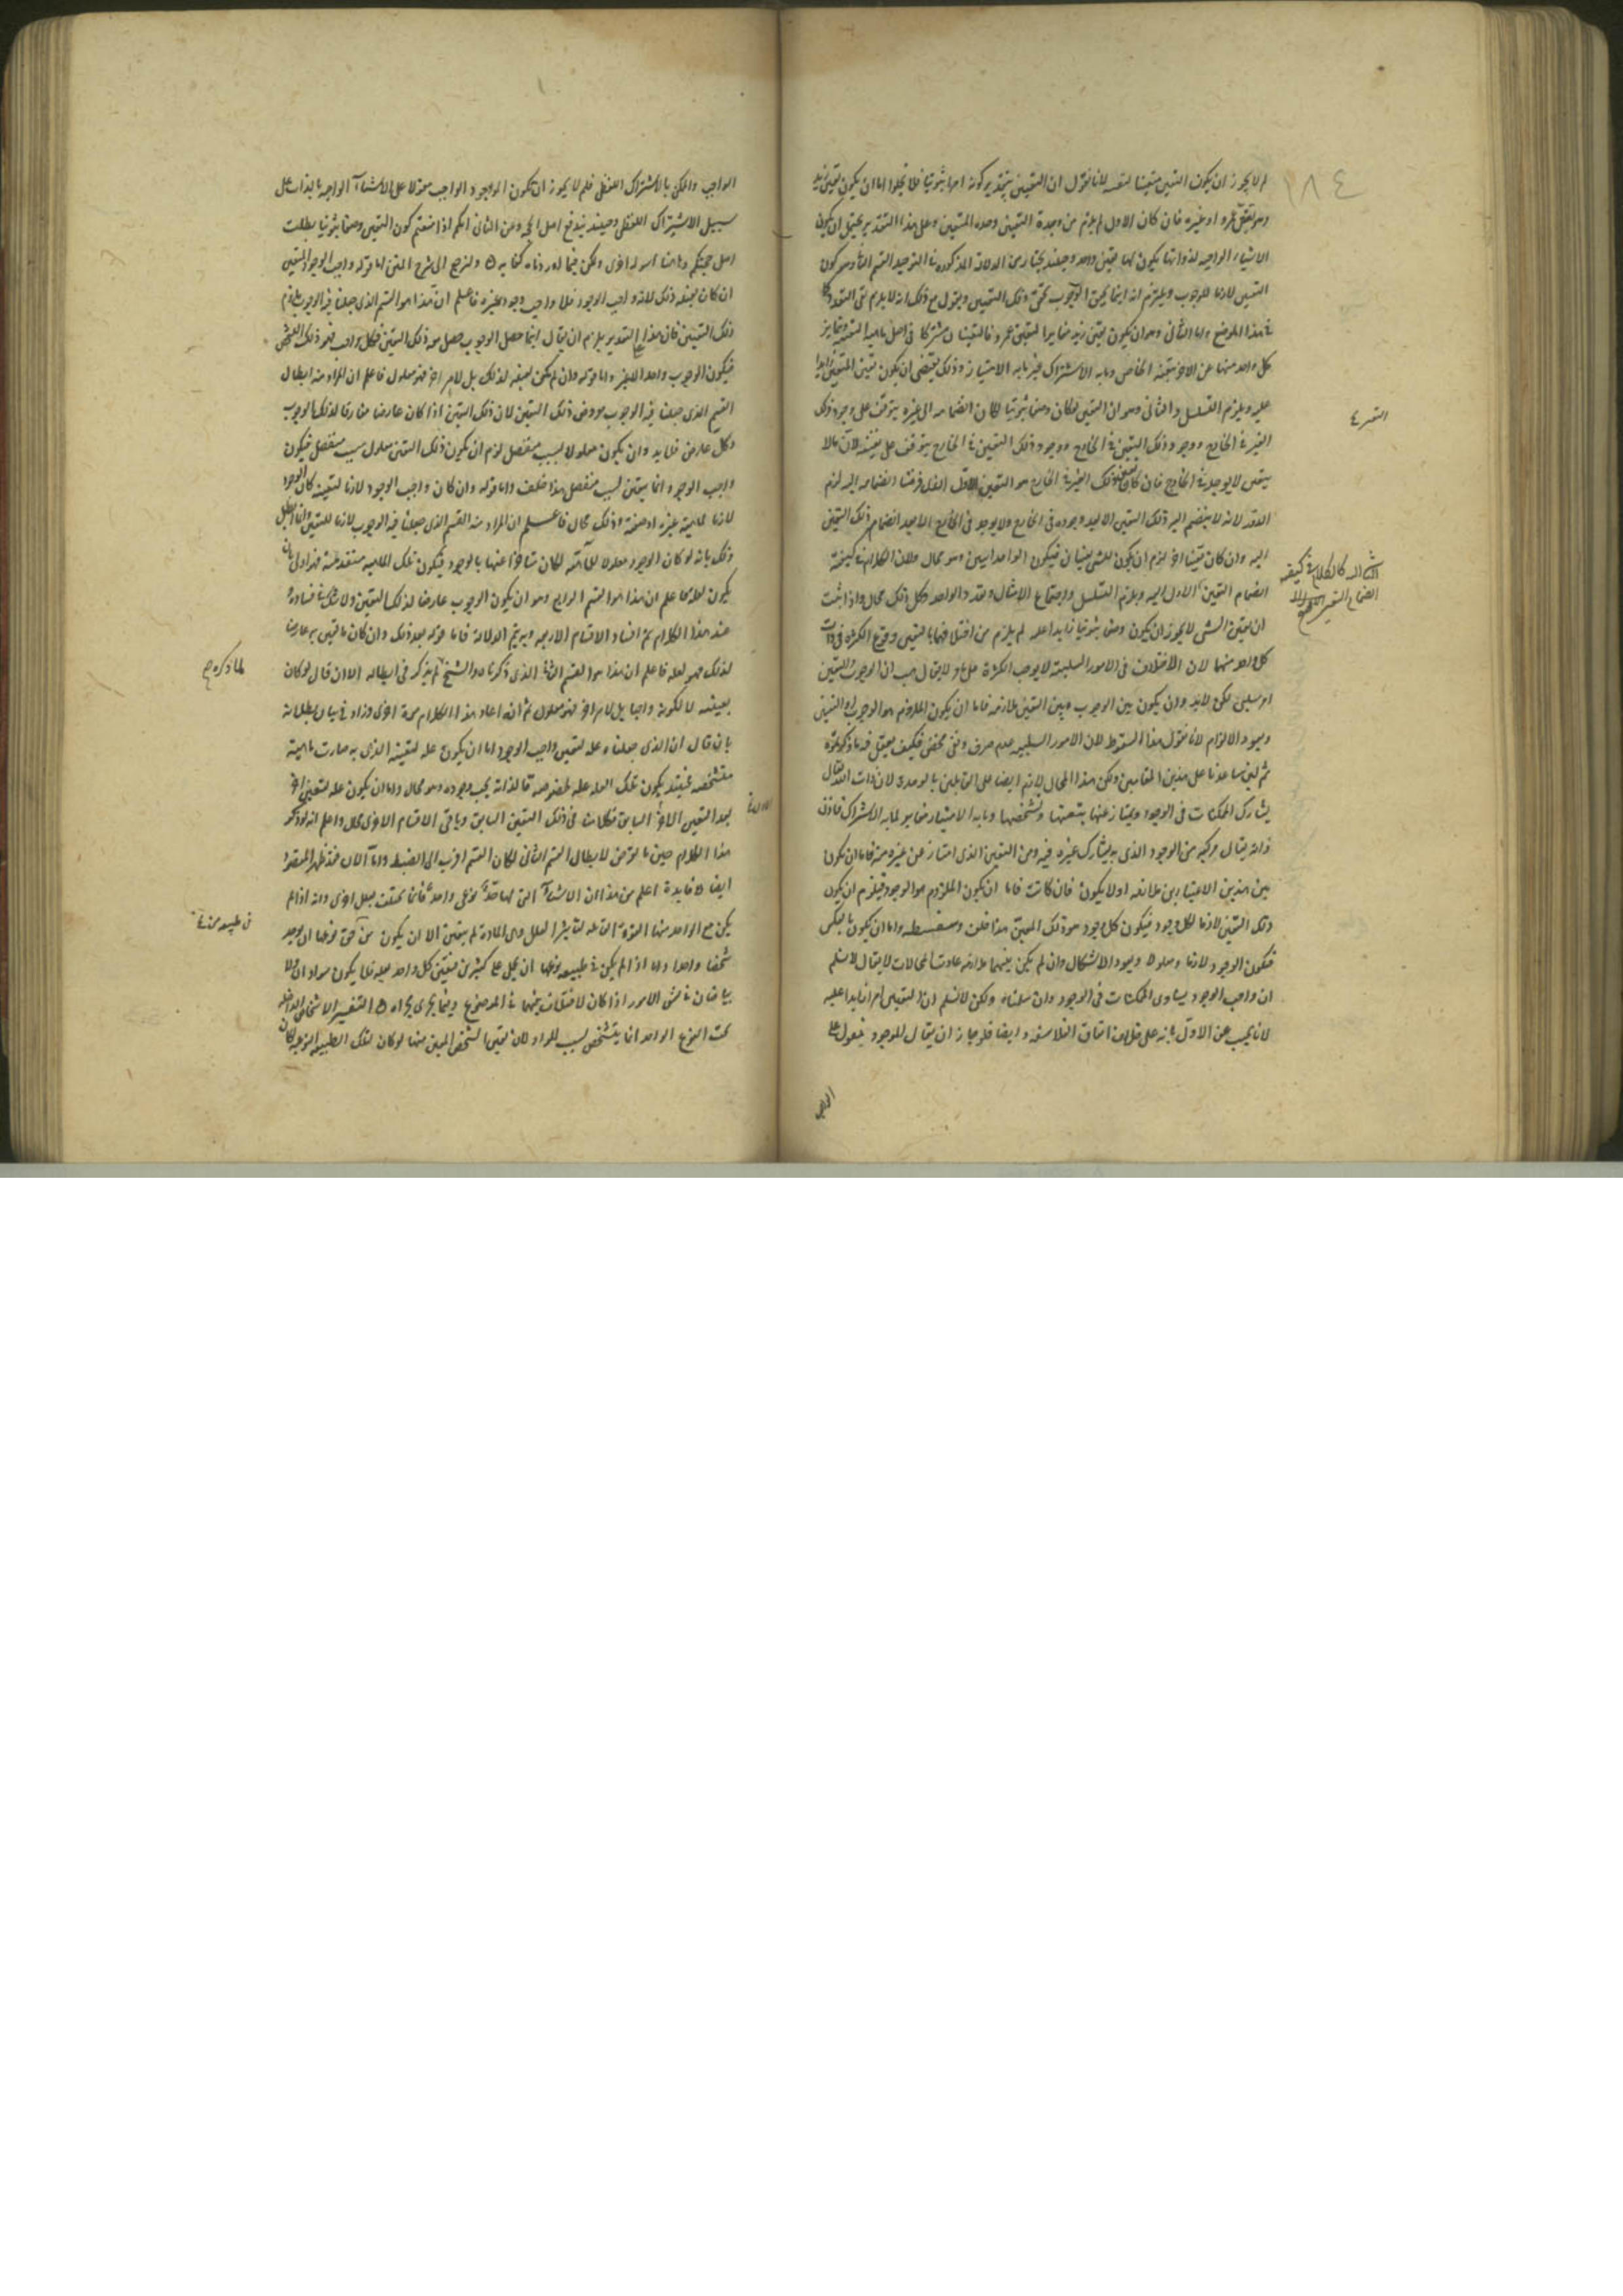 ١٨٤
لم لا يجوز ان يكون التعين متعينا لنفسه لانا نقول ان التعين بتقدير كونه امرا ثبوتيا فلا يخلوا اما ان يكون تعين زيد
هو تعين عمرو او غيره فان كان الاول لم يلزم من وحدة التعين وحده المتعين وعلى هذا التقدير يحتمل ان يكون
الاشياء الواجبه لذواتها يكون لها تعين واحد وحينئذ يختار من الدلالة المذكوره فى التوحيد القسم الثانى وهو كون
التعين لازما للوجوب ويلزم انه اينما تحقق الوجوب تحقق ذلك التعين ويقول مع ذلك انه لا يلزم نفى التعدد
فى هذا الموضع واما الثانى وهو ان يكون تعين زيد مغايرا لتعين عمرو فالتعينان مشتركان فى اصل ماهيه التعينيه ويمايز
كل واحد منهما عن الاخر بتعينه الخاص وما به الاشتراك غير ما به الامتياز وذلك يقتضى ان يكون تعين المتعين زايدا
عليه ويلزم التسلسل والثانى وهو ان التعين لو كان وصفا ثبوتيا لكان انضمامه الى غيره يتوقف على وجود ذلك
الغير فى الخارج ووجود ذلك التعين فى الخارج ووجود ذلك التعين فى الخارج يتوقف على تعينه لان ما لا
يتعين لا يوجد فى الخارج فان كان تعين ذلك الغير فى الخارج هو التعين الاول الذى فرضنا انضمامه اليه لزم
الدور لانه لا ينضم اليه ذلك التعين الا بعد وجوده فى الخارج ولا يوجد فى الخارج الا بعد انضمام ذلك التعين
اليه وان كان تعينا اخر لزم ان يكون للشى تعينان فيكون الواحد اثنين وهو محال ولان الكلام فى كيفية
انضمام التعين الاول اليه ويلزم التسلسل واجتماع الامثال وتعدد الواحد وكل ذلك محال واذا ثبت
ان تعين الشى لا يجوز ان يكون وصفا ثبوتيا زايدا عليه لم يلزم من اختلافهما بالتعين وقوع الكثرة فى ذات
كل واحد منهما لان الاختلاف فى الامور السلبية لا يوجب الكثرة لا يقال هب ان الوجوب والتعين
امر سلبى لكن لا بد وان يكون بين الوجوب وبين التعين ملازمه فاما ان يكون الملزوم هو الوجوب او التعين
ويعود الالزام لانا نقول هذا السقوط لان الامور السلبيه عدم صرف ونفى محض فكيف يعقل فيه ما ذكرتموه
ثم لئن ساعدنا على هذين المقامين ولكن هذا المحال لازم ايضا على القايلين بالوحده لان ذات الله تعالى
يشارك الممكنات فى الوجود ويمتاز عنها بتعينها وتشخصها وما به الامتياز مغاير لما به الاشتراك فاذن
ذاته تعالى مركبه من الوجود الذى به يشارك غيره فيه ومن التعين الذى امتاز عن غيره به فاما ان يكون
بين هذين الاعتبارين ملازمه اولا يكون فان كانت فاما ان يكون الملزوم هو الوجود فيلزم ان يكون
ذلك التعين لازما لكل وجود فيكون كل وجود هو ذلك المعين هذا خلف وسفسطه واما ان يكون بالعكس
فيكون الوجود لازما ومعلولا ويعود الاشكال وان لم يكن بينهما ملازمه عادت المحالات لا يقال لا نسلم
ان واجب الوجود يساوى الممكنات فى الوجود وان سلمناه ولكن لا نسلم ان التعين امر زايدا عليه
لانا نجيب عن الاول بانه على خلاف اتفاق الفلاسفه وايضا فلو جاز ان يقال الموجود مقول على
الواجب
الواجب والممكن بالاشتراك اللفظى فلم لا يجوز ان يكون الواجود الواجب مقولا على الاشياء الواجبه بالذات على
سبيل الاشتراك اللفظى وحينئذ يندفع اصل الحجه وعن الثانى انكم اذا منعتم كون التعين وصفا ثبوتيا بطلت
اصل حجتكم وهاهنا اسوله اخرى ولكن فيما اوردناه كفايه ولنرجع الى شرح المتن اما قوله واجب الوجود المتعين
ان كان تعينه ذلك لانه واجب الوجود فلا واجب وجود غيره فاعلم ان هذا هو القسم الذى جعلنا فيه الوجوب ملزوم
ذلك التعين فان هذا التقدير يلزم ان يقال اينما حصل الوجوب حصل معه ذلك التعين فكل واجب فهو ذلك الشخص
فيكون الوجوب واحدا لا غير واما قوله وان لم يكن تعينه لذلك بل لامر اخر فهو معلول فاعلم ان المراد منه ابطال
القسم الذى جعلنا فيه الوجوب معروض ذلك التعين لان ذلك التعين اذا كان عارضا مفارقا لذلك الوجوب
وكل عارض فلا بد وان يكون معلولا لسبب منفصل لزم ان يكون ذلك التعين معلول سبب منفصل فيكون
واجب الوجود انما يتعين لسبب منفصل هذا خلف واما قوله وان كان واجب الوجود لازما لتعينه كان الوجود
لازما لماهية غيره او صفة وذلك محال فاعلم ان المراد منه القسم الذى جعلنا فيه الوجوب لازما للتعين وانما ابطل
ذلك بانه لو كان الوجود معلولا للماهيه لكان متاخرا عنها بالوجود فيكون تلك الماهيه متقدمه
يكون لعله فاعلم ان هذا هو القسم الرابع وهو ان يكون الوجوب عارضا لذلك التعين ولا شك فى فساده
عند هذا الكلام تم افساد الاقسام الاربعه وبه يتم الدلالة فاما قوله بعد ذلك وان كان ما تعين به عارضا
لذلك فهو لعله فاعلم ان هذا هو القسم الثانى الذى ذكرناه والشيخ لم يذكر فى ابطاله الا ان قال لو كان
بعينه لا لكونه واجبا بل لامر اخر فهو معلول ثم انه اعاد هذا الكلام مرة اخرى وزاد فى بيان بطلانه
بان قال ان الذى جعلناه عله لتعين واجب الوجود اما ان يكون عله لتعينه الذى به صارت ماهيته
متشخصه فحينئذ يكون تلك العله عله لخصوصيه ما لذاته يجب وجوده وهو محال واما ان يكون عله لتعين اخر
بعد التعين الاول السابق فكلامنا فى ذلك التعين السابق وباقى الاقسام الاخرى محال واعلم انه لو ذكر
هذا الكلام حين ما تعرض لابطال القسم الثانى لكان القسم اقرب الى الضبط واما الان فقد ظهر المقصود
ايضا فايدة اعلم من هذا ان الاشياء التى لها حد نوعى واحد فانما تختلف بعلل اخرى وانه اذا لم
يكن مع الواحد منها القوة القابله لتاثير العلل وهى المادة لم يتعين الا ان يكون من حق نوعها ان يوجد
شخصا واحدا واما اذا لم يكن فى طبيعه نوعها ان يحمل على كثيرين فتعين كل واحد بعلة فلا يكون سوادان ولا
بياضان فى نفس الامور اذا كان لا اختلاف بينهما فى الموضوع وفيما يجرى مجراه التفسير الاشخاص الداخله
تحت النوع الواحد انما يتشخص لسبب المواد لان تعين الشخص المعين منها لو كان لتلك الطبيعه النوعيه لكان
لما ذكره